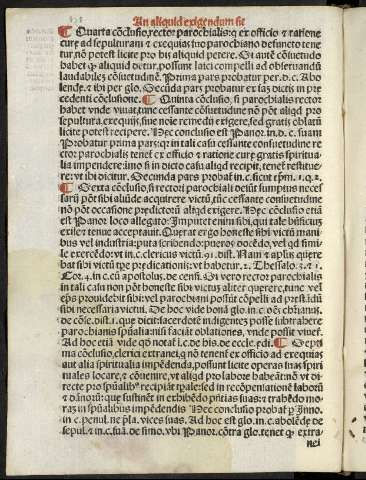 An aliquid exigendum sit
¶ Quarta cõclusio, rector parochialis: q̃ ex officio & ratione
cure ad sepulturam & exequias suo parochiano defuncto tene
tur nõ potest licite pro his aliquid petere. Si autẽ cõsuetudo
habet q̃ aliquid detur, possunt laici compelli ad obseruandũ
laudabilẽ cõsuetudinẽ. Prima pars probatur per. d. c. Abo
lende. & ibi per glo. Secunda pars probatur ex iaz dictis in pre
cedenti cõclusione. ¶ Quinta cõclusio, si parochialis rector
habet vnde viuat, tunc cessante cõsuetudine nõ põt aliqd pro
sepultura, exequijs, siue neie remedij exigere, sed gratis oblatũ
licite potest recipere. Nec conclusio est Panor. in. d. c. suam
Probatur prima pars: q̃ in tali casu cessante consuetudine re
ctor parochialis tenet ex officio & ratione cure gratis spiritua
lia impendere: imo si in dicto casu aliqd recipit, tenet restitue/
re: vt ibi dicitur. Secunda pars probat in. c. sicut epm. 1. q. 2.
¶ Sexta cõclusio, si rectori parochiali desũt sumptus neces/
sarij põt sibi aliũde acquirere victũ, tũc cessante consuetudine
nõ põt occasione predictorũ aliqd exigere. Nec cõclusio etiã
est Panor loco allegato: Imputet enim sibi, qui tale bñficius
exiler tenue acceptauit. Querat ergo honeste sibi victũ mani
bus vel industria: puta scribendo: pueros docẽdo, vel qd simi
le exercẽdo: vt in. c. clericus victũ. 91. dist. Nam & aplus quere
bat sibi victũ pe predicationis: vt habetur. 2. Thessalo. 3. & 1.
Cor. 4. in. c. cũ apostolus. de censi. Si vero rector parochialis
in tali casu non põt honeste sibi victus aliter querere, tunc vel
eps prouidebit sibi: vel parochiani possũt cõpelli ad prestãdũ
sibi necessaria victui. De hoc vide bonã glo. in. c. oẽs christiani.
de cõse. dist. 1. que dicit sacerdotẽ indigentes posse subtrahere
parochianis spũalia: nisi faciãt oblationes, vnde possit viuere.
Ad hoc etiã vide qd notat i. c. de his. de eccle. edi. ¶ Septi
ma cõclusio, clerici extranei, q̃ nõ tenent ex officio ad exequias
aut alia spiritualia impẽdenda, possunt licite operas suas spiri
tuales locare, & cõuenire, vt aliqd pro labore habeãt: nõ vt di
recte pro spũalib' recipiãt tpale: sed in recõpensationẽ laborũ
& dãnorũ: que sustinẽt in exhibẽdo pñtias suas: & trahẽdo mo/
ras in spũalibus impẽdendis Nec conclusio probat p Inno.
in. c. penul. ne pla. vices suas. Ad hoc est glo. in. c. abolẽde de
sepul. & in. c. suã. de simo. vbi Panor. cõtra glo. tenet q̃ extra/
nei